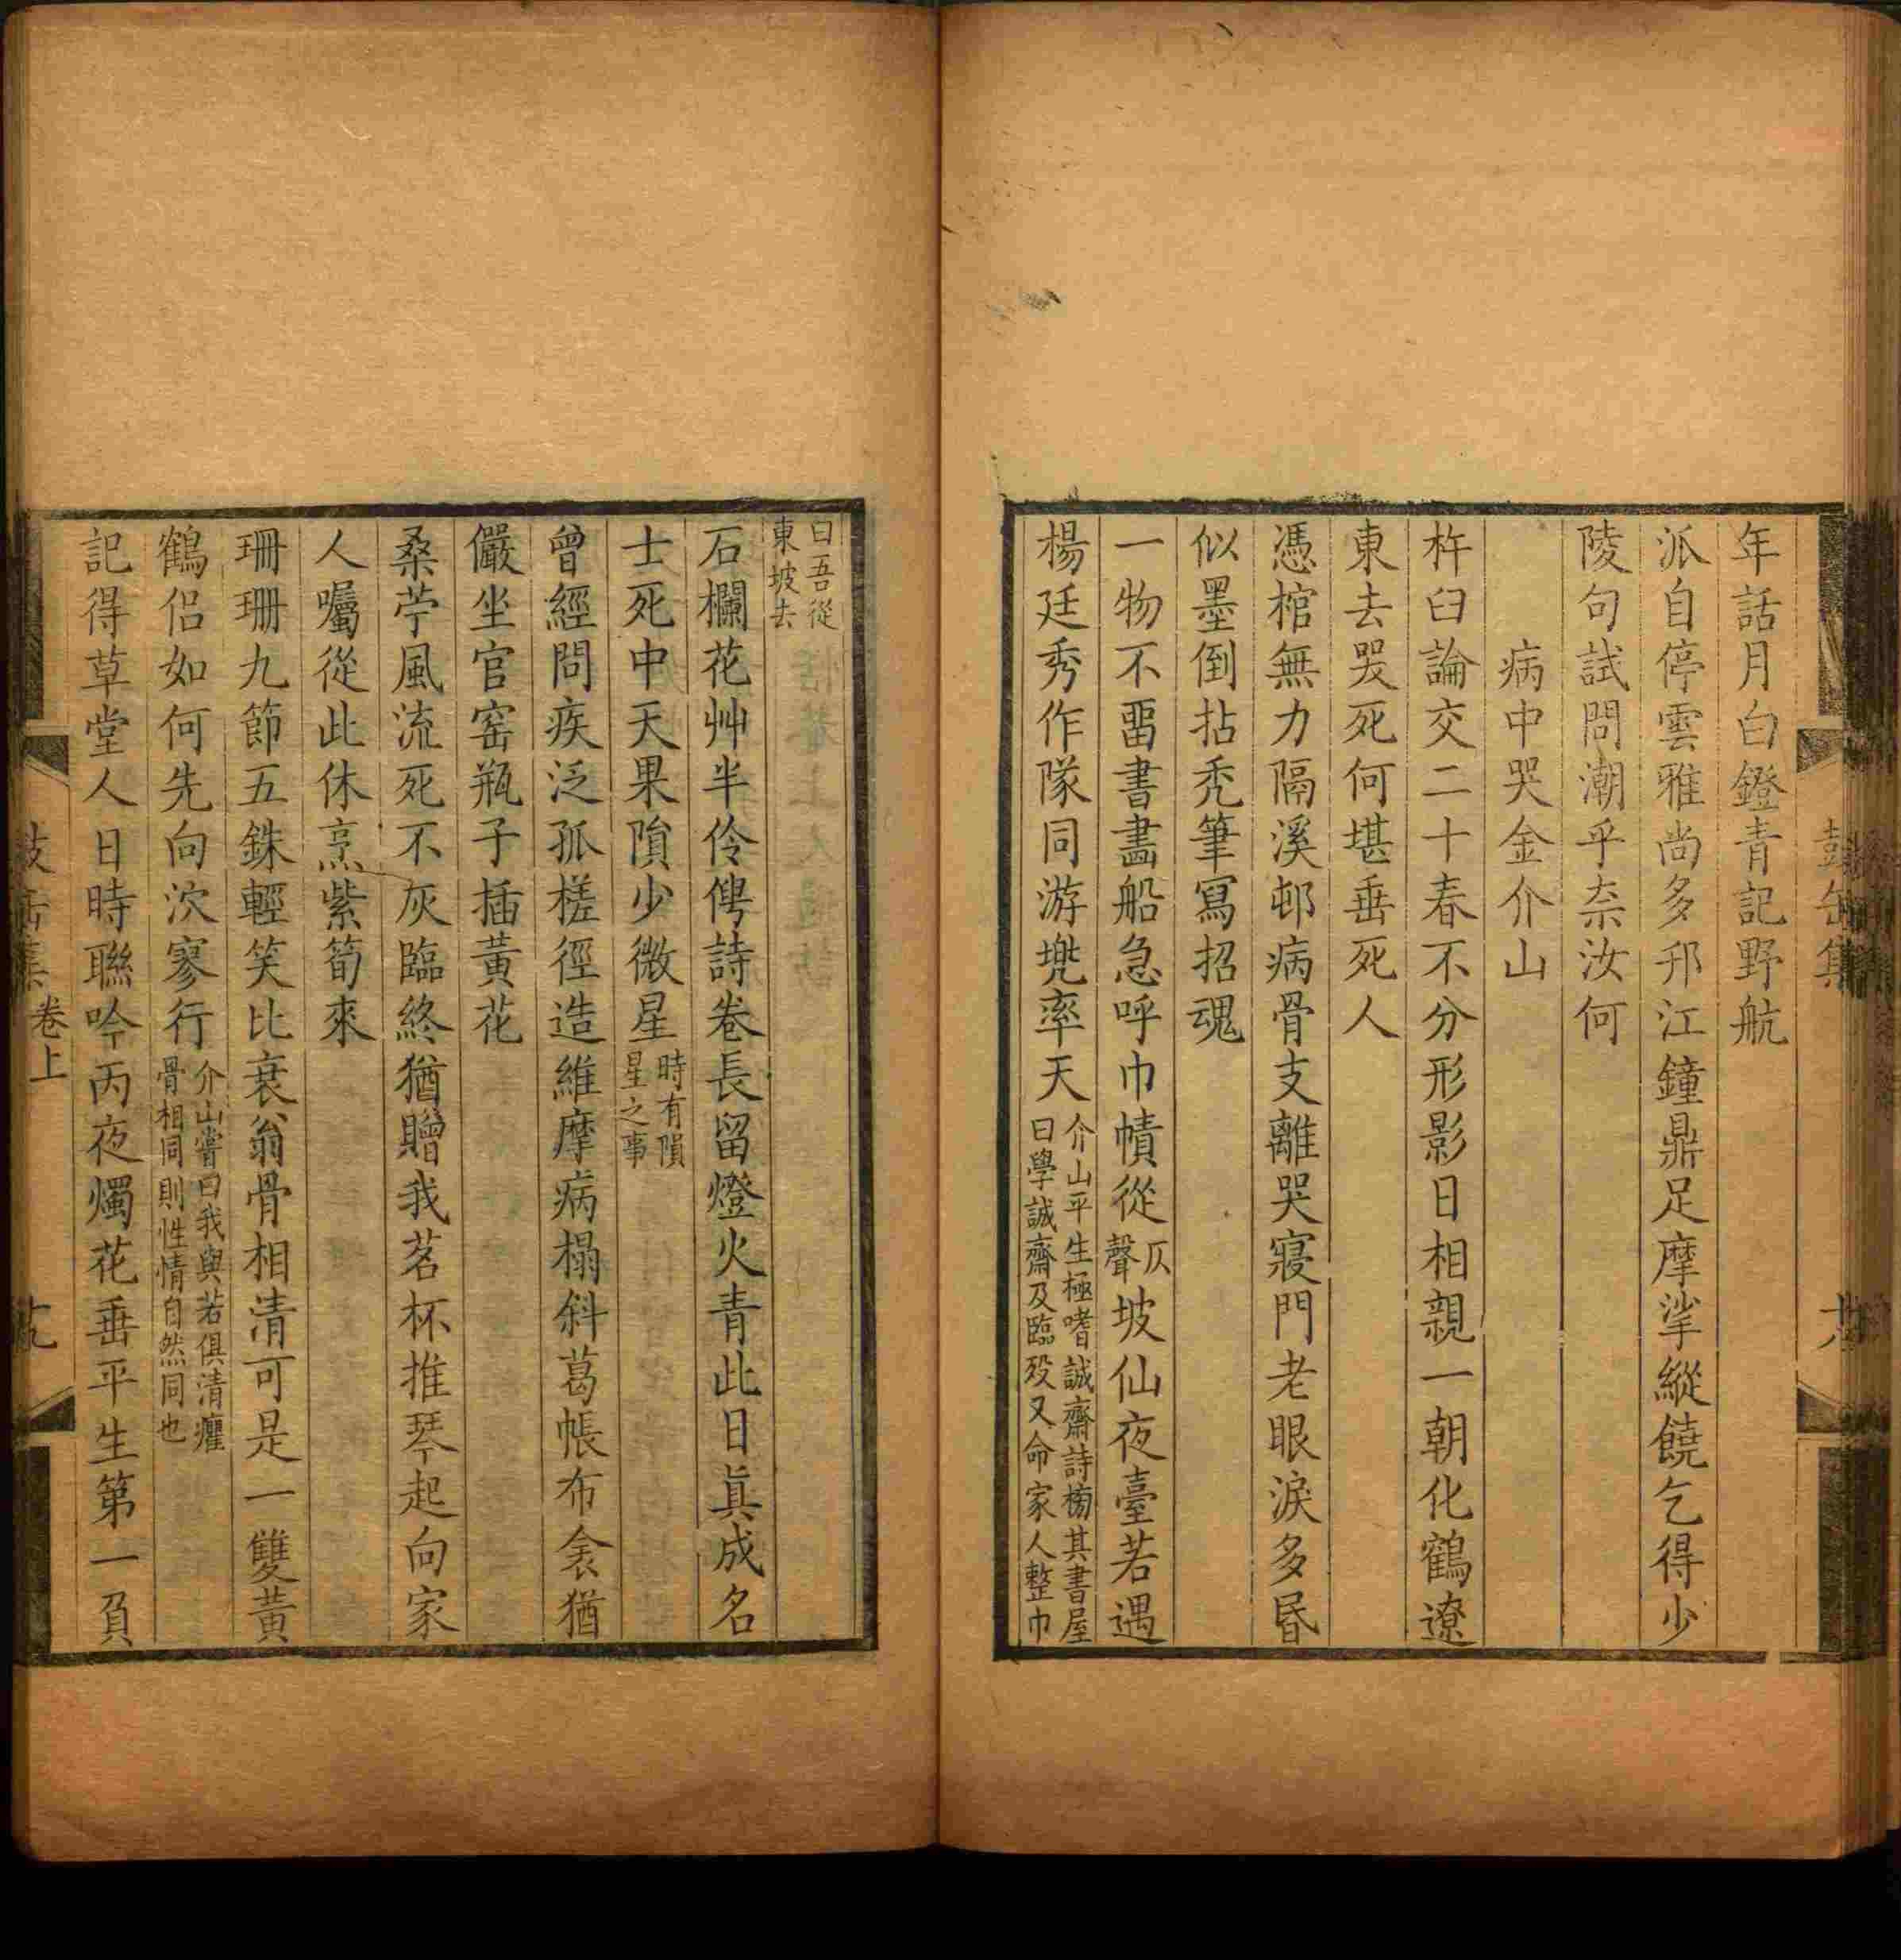 年話月白鐙青記野航
派自停雲雅尚多邗江鐘鼎足摩挲縱饒乞得少
陵句試問潮乎柰汝何
病中哭金介山
杵臼論交二十春不分形影日相親一朝化鶴遼
東去哭死何堪垂死人
憑棺無力隔溪邨病骨支離哭寢門老眼淚多昏
似墨倒拈禿筆寫招魂
一物不畱書畵船急呼巾幘從仄聲坡仙夜臺若遇
楊廷秀作隊同游兠率天介山平生極嗜誠齋詩榜其書屋
曰學誠齋及臨歿又命家人整巾
曰吾從
東坡去
石欄花艸半伶俜詩卷長留燈火青此日眞成名
士死中天果隕少微星時有隕
星之事
曾經問疾泛孤槎徑造維摩病榻斜葛帳布衾猶
儼坐官窑瓶子插黃花
桑苧風流死不灰臨終猶贈我茗杯推琴起向家
人囑從此休烹紫筍來
珊珊九節五銖輕笑比衰翁骨相清可是一雙黃
鶴侣如何先向泬寥行介山嘗曰我與若俱清癯
骨相同則性情自然同也
記得草堂人日時聯吟丙夜燭花垂平生第一負
卷上